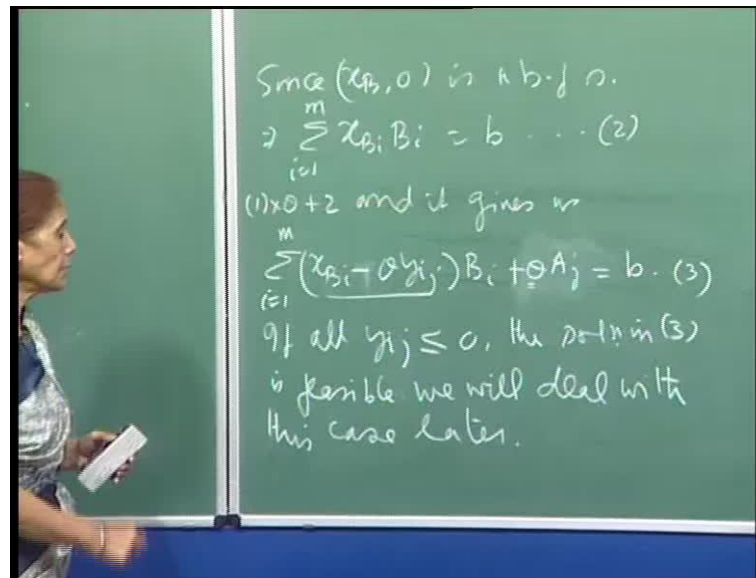 Since (x_B, 0) is a b.f.s.
⇒ m∑i=1 x_{Bi} B_i = b ... (2)
(1)×θ+2 and it gives us
m∑i=1 (x_{Bi} - θy_{ij}) B_i + θA_j = b. (3)
If all y_{ij} ≤ 0, the soln in (3)
is feasible we will deal with
this case later.